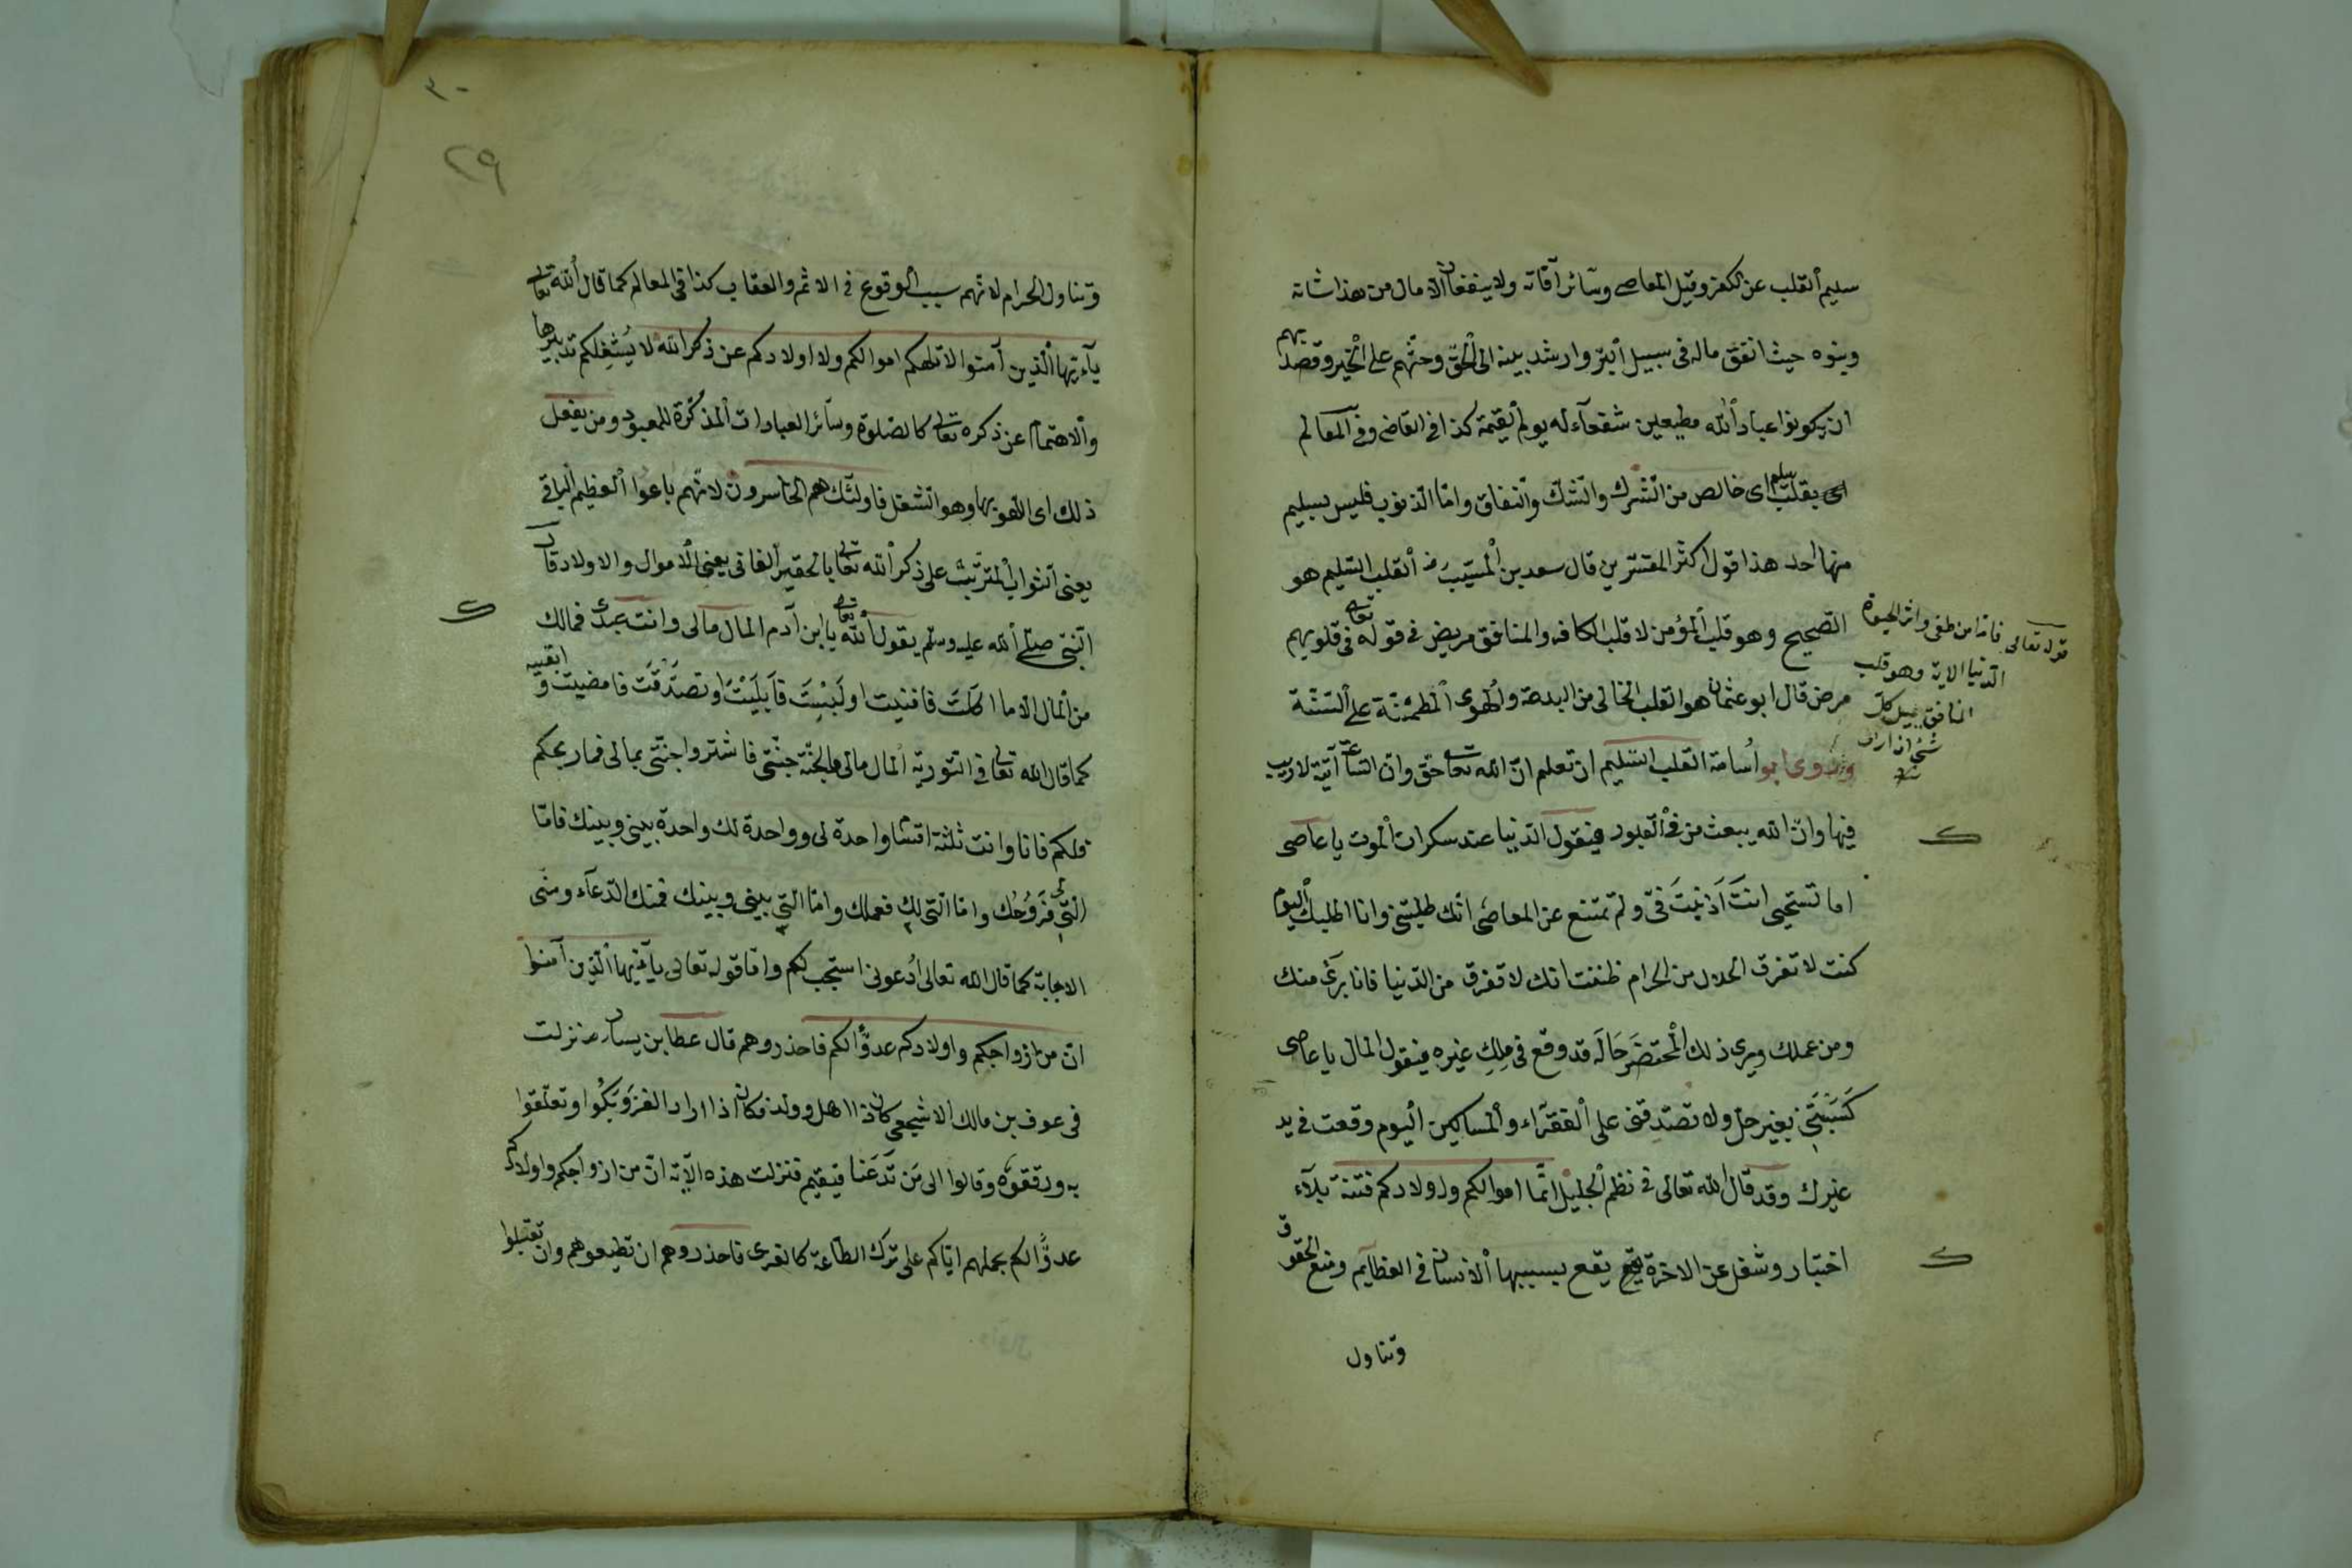 سليم القلب عن الكفر وقيل المعاصى وسآئر آفاته ولا ينفعان الا مال من هذا شانه
وبنوه حيث انفق ماله فى سبيل البرّ وارشد بنيه الى الحقّ وحثّهم على الخير وقصد بهم
ان يكونوا عباد الله مطيعين شفعآء له يوم القيمة كذا فى القاضى وفى المعالم
بقلب سليم اى خالص من الشّرك والشّكّ والنّفاق وامّا الذنوب فليس بسليم
منها احد هذا قول اكثر المفسّرين قال سعد بن المسيّب رض القلب السّليم هو
الصّحيح وهو قلب المؤمن لا قلب الكافر والمنافق مريض فى قوله تعالى فى قلوبهم
قوله تعالى فامّا من طغى واثر الحيوة
الدّنيا الاية وهو قلب
المنافق يميل كلّ
شئ ان اراد
مرض قال ابو عثمان هو القلب الخالى من البدعة والهوى المطمئنّة على السّنّة
وروى ابو أسامة القلب السّليم ان تعلم انّ الله تعالى حقّ وانّ السّاعة آتية لا ريب
فيها وانّ الله يبعث من فى القبور فيقول الدّنيا عند سكرات الموت يا عاصى
اما تستحيى انت اَذنبتَ فىّ ولم تمتنع عن المعاصى انّك طلبتنى وانا اطلبك اليوم
كنت لا تفرق الحلال من الحرام ظننت انك لا تفرق من الدّنيا فانا برئ منك
ومن عملك ويرى ذلك المُحتضَر حَالَه قد وقع فى مِلكِ غيره فيقول المال يا عاصى
كَسَبْتَنِى بغير حلّ ولا تصَدّقتنى على الفقرآء والمساكين اليوم وقعت فى يد
غيرك وقد قال الله تعالى فى نظم الجليل انّما اموالكم واولادكم فتنة بلآء
اختبار وشغل عن الاخرة يقع بسببها الانسان فى العظايم ومنع الحقوق
وتناول
٣٠
٢٩
وتناول الحرام لانّهم سبب الوقوع فى الاثم والعقاب كذا فى المعالم كما قال الله تعالى
يآءيّها الّذين آمنوا لا تلهكم اموالكم ولا اولادكم عن ذكر الله لا يُشْغِلكم تدبيرها
والاهتمام عن ذكره تعالى كالصّلوة وسآئر العبادات المذكّرة للمعبود ومن يفعل
ذلك اى اللّهو بها وهو الشّغل فاولئك هم الخاسرون لانّهم باعوا العظيم الباقى
يعنى الثواب المترتّب على ذكر الله تعالى بالحقير الفانى يعنى الاموال والاولاد قال
النّبىّ صلّى الله عليه وسلّم يقول الله تعالى يا ابن آدم المال مالى وانت عبدى فمالك
من المال الّا ما اكلتَ فافنيت او لَبِسْتَ فَاَبلَيْتَ او تصدّقتَ فامضيت وابقيته
كما قال الله تعالى فى التّورية المال مالى والجنّة جنّتى فاشتروا جنّتى بمالى فما ربحكم
فلكم فانا وانت ثلثة اقسام واحدة لى وواحدة لك واحدة بينى وبينك فامّا
الّتى لى فَرَوْحُك وامّا الّتى لك فعملك وامّا الّتى بينى وبينك فمنك الدّعآء ومنّى
الاجابة كما قال الله تعالى اُدعونى استجب لكم وامّا قوله تعالى يآءيّها الّذين آمنوا
انّ من ازواجكم واولادكم عدوًّا لكم فاحذروهم قال عطا بن يسار رض نزلت
فى عوف بن مالك الاشجعى كان ذا اهل وولد فكان اذا اراد الغزو بَكَوْا وتعلّقوا
به ورقّقوه وقالوا الى مَن تَدَعنا فيقيم فنزلت هذه الآية انّ من ازواجكم واولادكم
عدوًّا لكم بحملهم ايّاكم على ترك الطّاعة كالغزى فاحذروهم ان تطيعوهم وان تقبلوا